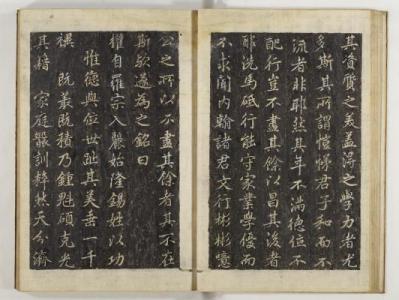 其資質之美盖得之學力者尤
多斯其所謂愷悌君子和而不
流者非耶然其年不滿德位不
配行豈不盡其餘以昌其後者
耶洗馬砥行能守家業學優而
不求聞内翰諸君文行彬彬噫
公之所以不盡其餘者其不在
斯歟遂為之銘曰
惟自羅宗入嚴始隆錫姓以功
惟德與位世趾其美垂一千
禩既羨既積乃鍾魁碩克光
其 家庭嚴訓粹然天分濟